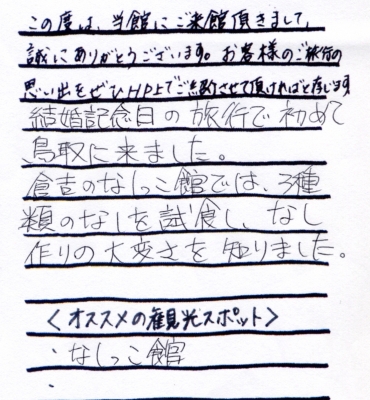 この度は、当館にご来館頂きまして、
誠にありがとうございます。お客様のご旅行の
思い出をぜひHP上でご紹介させて頂ければと存じます
結婚記念日の旅行で初めて
鳥取に来ました。
倉吉のなしっこ館では、3種
類のなしを試食し、なし
作りの大変さを知りました。
<オススメの観光スポット>
・なしっこ館
・